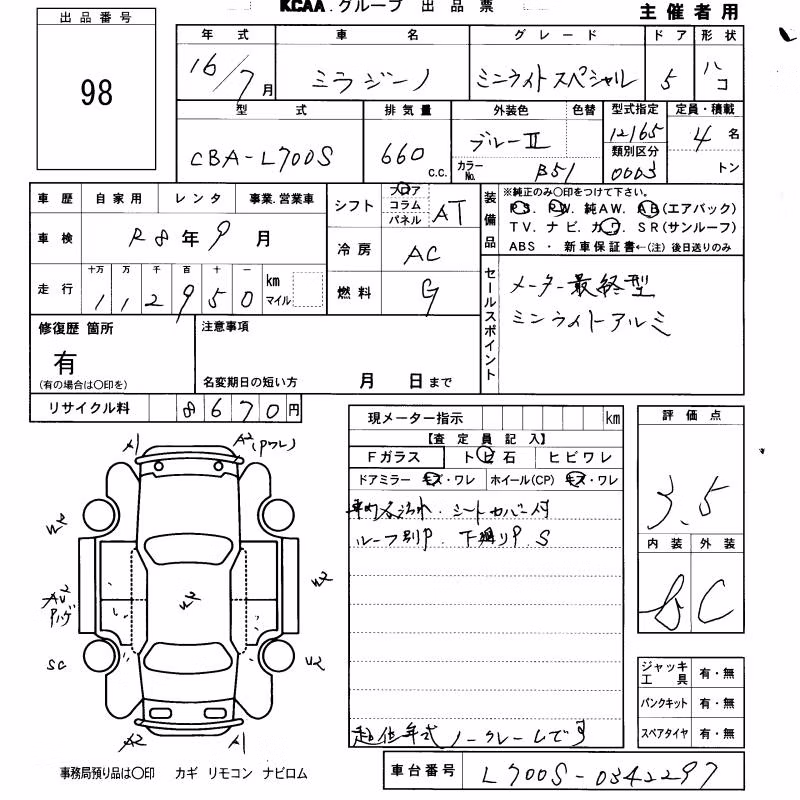 KCAA.グループ 出品票
主催者用
出品番号
98
年式 車名 グレード ドア 形状
16/7月 ミラジーノ ミニライトスペシャル 5 ハコ
型式 排気量 外装色 色替 型式指定 定員・積載
CBA-L700S 660 c.c. ブルーII 12165 4名
カラーNo. B51 類別区分 0003 トン
車歴 自家用 レンタ 事業.営業車
車検 R8年9月
走行 十万 万 千 百 十 一
1 1 2 9 5 0 km マイル
シフト フロア コラム パネル AT
冷房 AC
燃料 G
装備品 ※純正のみ〇印をつけて下さい。
PS. PW. 純AW. AB(エアバック)
TV. ナビ. カワ. SR(サンルーフ)
ABS ・ 新車保証書←(注) 後日送りのみ
セールスポイント
メーター最終型
ミニライトアルミ
修復歴 箇所
有
(有の場合は〇印を)
注意事項
名変期日の短い方 月 日まで
リサイクル料 8670円
現メーター指示 km
【査定員記入】
Fガラス トビ石 ヒビワレ
ドアミラー キズ・ワレ ホイール(CP) キズ・ワレ
車内 汚れ. シートカバー付
ルーフ別P. 下廻りP. S
低年式 ノークレームです
評価点
3.5
内装 外装
B C
ジャッキ工具 有・無
パンクキット 有・無
スペアタイヤ 有・無
A1 A2(Pワレ)
U2
U2
U2
AU2
Pハゲ
SC
U2
A2 A1
事務局預り品は〇印 カギ リモコン ナビロム
車台番号 L700S-0342297